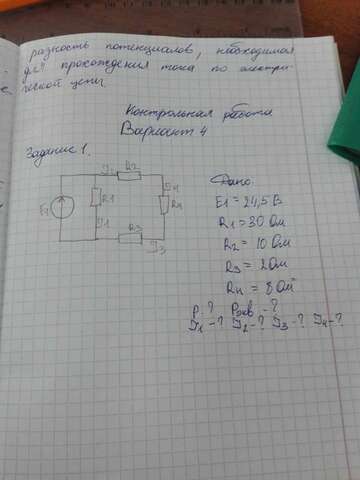 разность потенциалов, необходимая
для прохождения тока по электри
ческой цепи.
Контрольная работа
Вариант 4
Задание 1.
R2
E1
R1
I1
R3
I3
Rн
Дано:
E1 = 24,5 В
R1 = 30 Ом
R2 = 10 Ом
R3 = 2 Ом
Rн = 8 Ом
P-? Rэкв. -?
I1 -? I2 -? I3 -? I4 -?